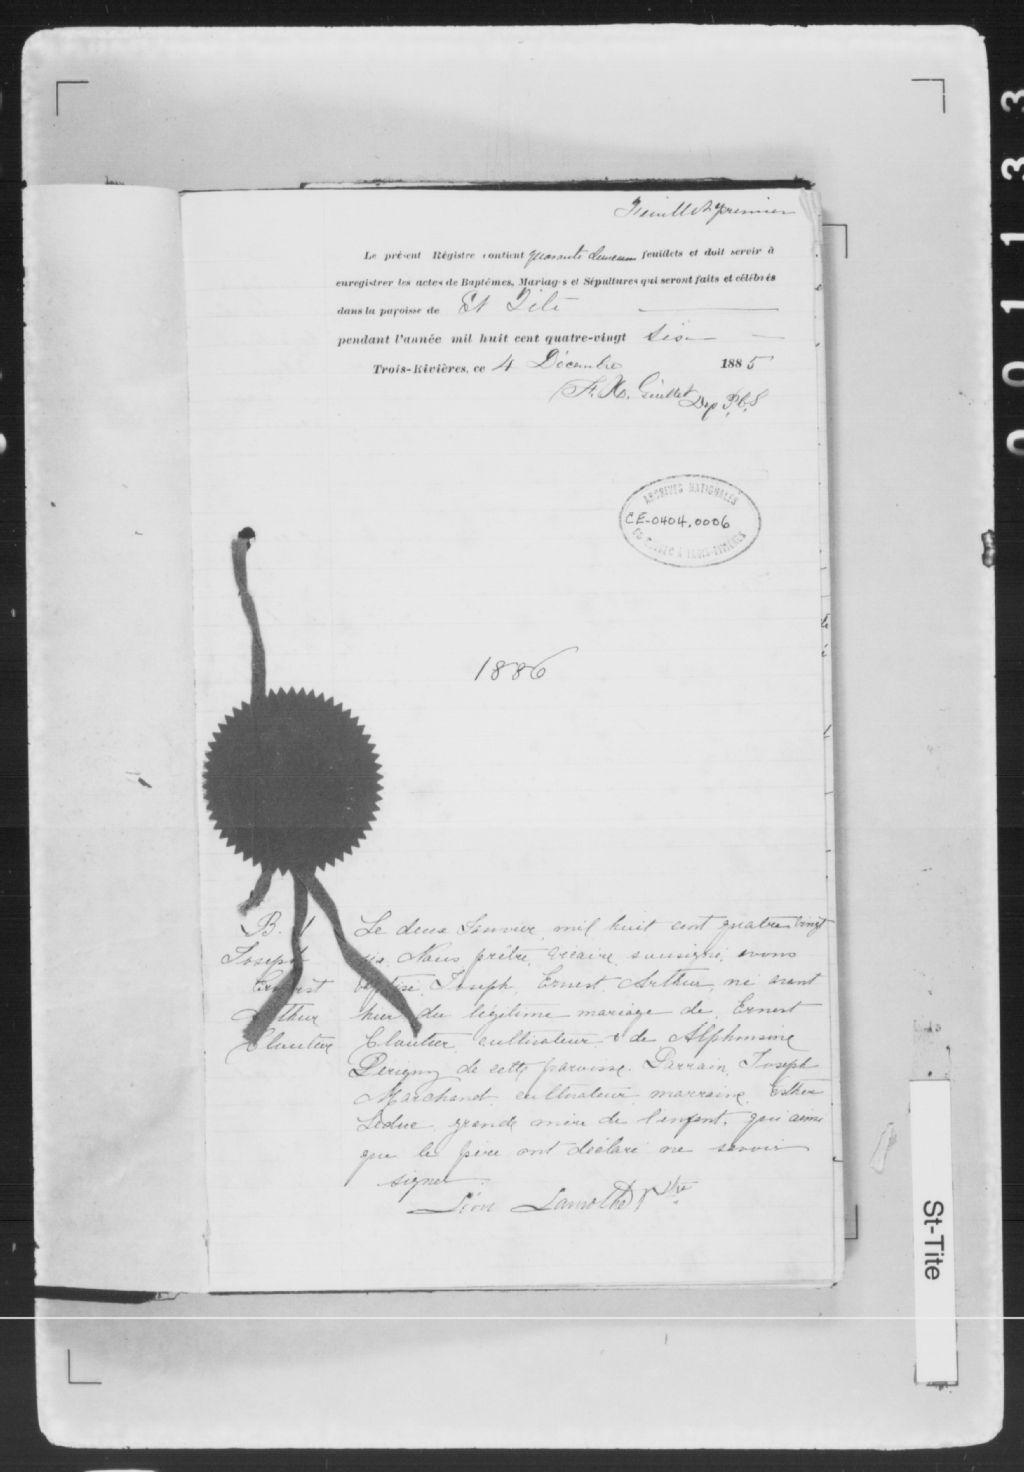 Feuillet premier
Le présent Régistre contient quarante deux feuillets et doit servir à
enregistrer les actes de Baptêmes, Mariages et Sépultures qui seront faits et célébrés
dans la paroisse de St Tite
pendant l'année mil huit cent quatre-vingt six
Trois-Rivières, ce 4 Décembre 1885
F. X. Guillet Dep P.C.S
ARCHIVES NATIONALES
CE-0404.0006
DU QUÉBEC À TROIS-RIVIÈRES
1886
B. 1
Joseph
Ernest
Arthur
Cloutier
Le deux Janvier mil huit cent quatre vingt
six, Nous prêtre, vicaire, soussigné, avons
baptisé Joseph, Ernest, Arthur, né avant
hier du légitime mariage de Ernest
Cloutier cultivateur & de Alphonsine
Périgny de cette paroisse. Parrain, Joseph
Marchand, cultivateur, marraine, Esther
Leduc, grande mère de l'enfant, qui ainsi
que le père ont déclaré ne savoir
signer.
Léon Lamothe Ptre
St-Tite
0 0 1 3 3